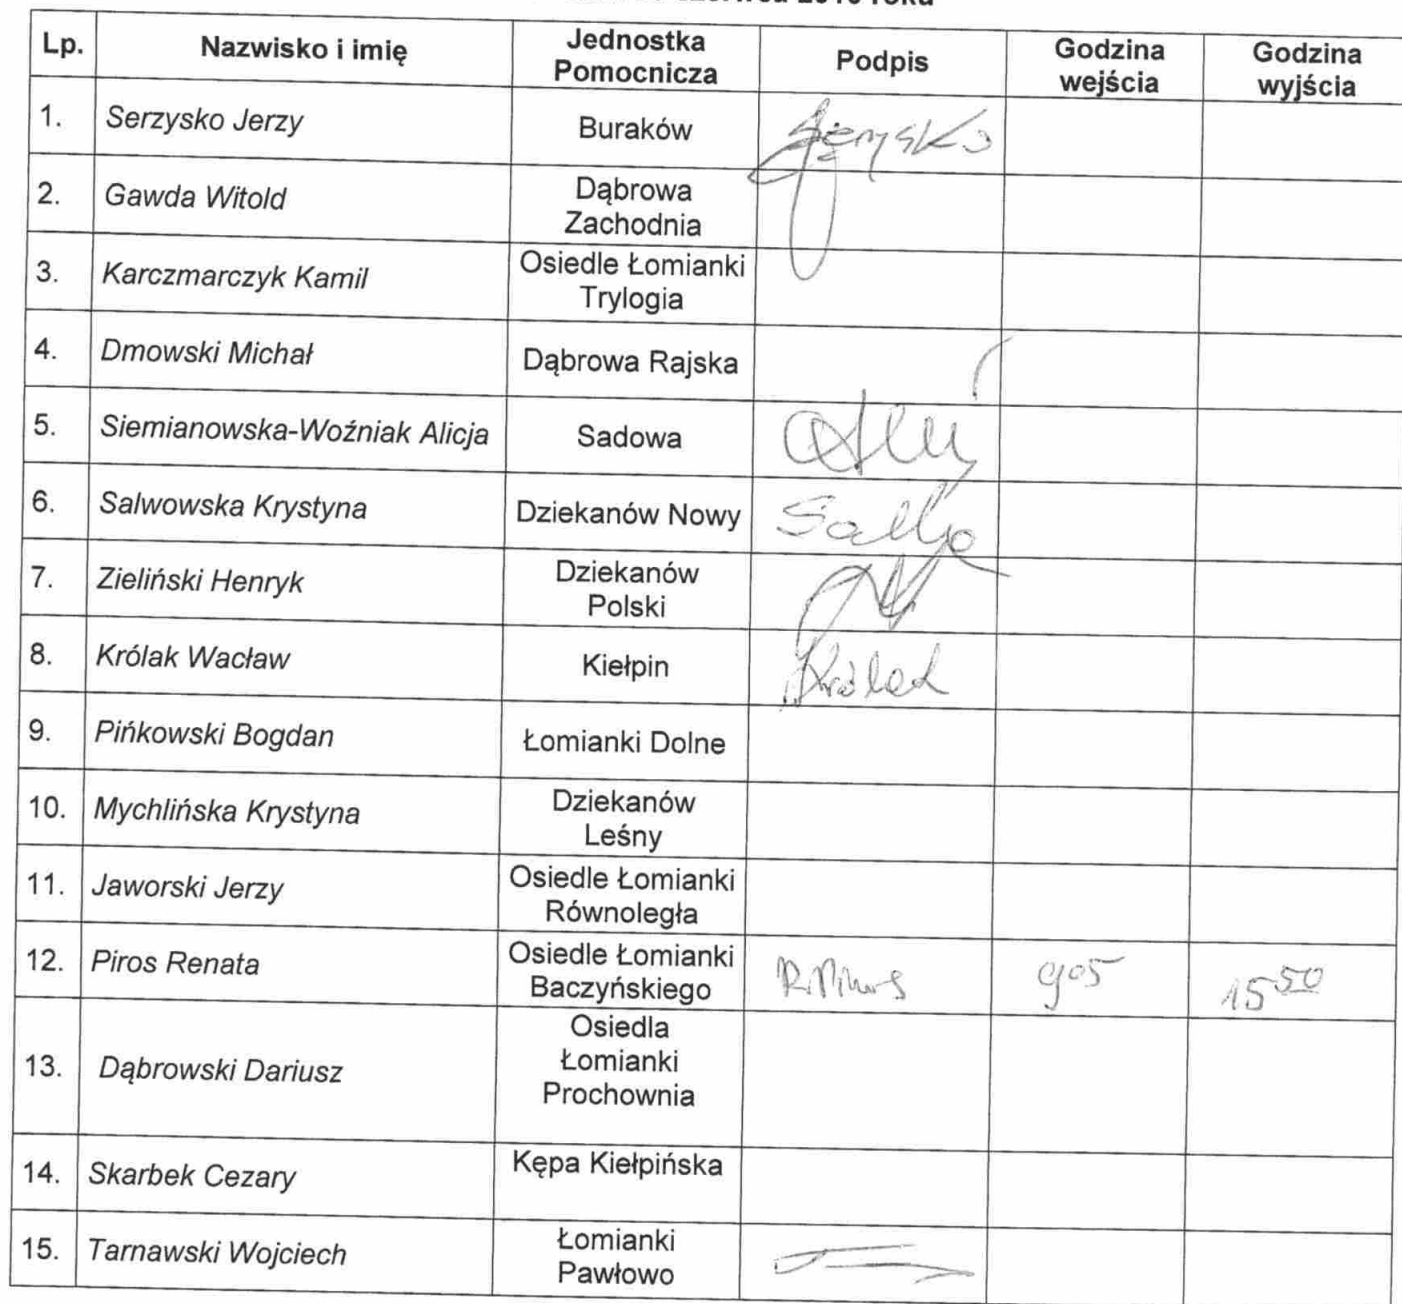 Lp. Nazwisko i imię Jednostka Pomocnicza Podpis Godzina wejścia Godzina wyjścia
1. Serzysko Jerzy Buraków
2. Gawda Witold Dąbrowa Zachodnia
3. Karczmarczyk Kamil Osiedle Łomianki Trylogia
4. Dmowski Michał Dąbrowa Rajska
5. Siemianowska-Woźniak Alicja Sadowa
6. Salwowska Krystyna Dziekanów Nowy
7. Zieliński Henryk Dziekanów Polski
8. Królak Wacław Kiełpin Królak
9. Pińkowski Bogdan Łomianki Dolne
10. Mychlińska Krystyna Dziekanów Leśny
11. Jaworski Jerzy Osiedle Łomianki Równoległa
12. Piros Renata Osiedle Łomianki Baczyńskiego R. Piros 905 1550
13. Dąbrowski Dariusz Osiedla Łomianki Prochownia
14. Skarbek Cezary Kępa Kiełpińska
15. Tarnawski Wojciech Łomianki Pawłowo